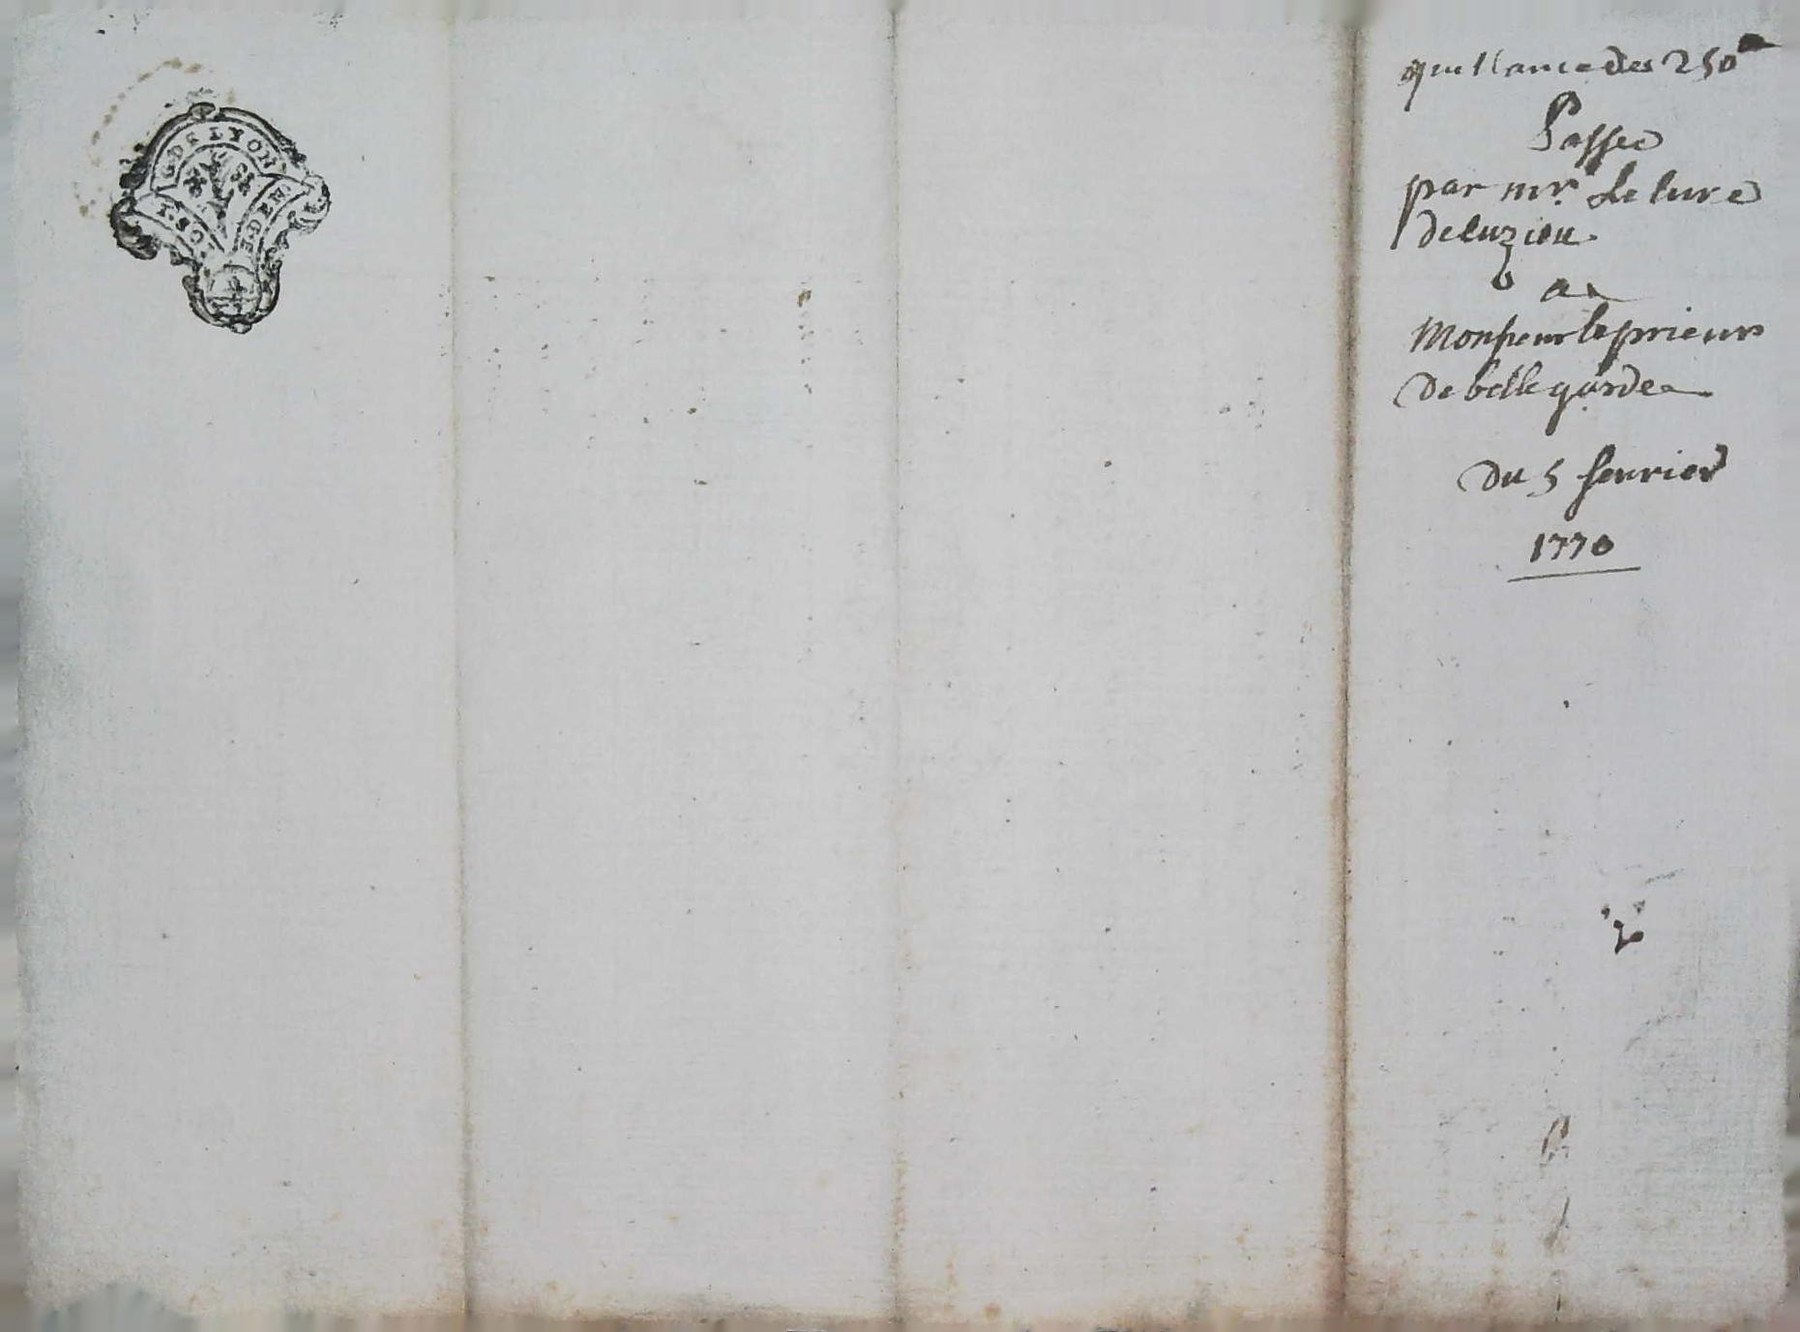 G. DE LYON
quittance des 250#
Passée
par mr. Le Cure
de Cuzieu
a
Monsieur le prieur
De bellegarde
Du 5 fevrier
1770